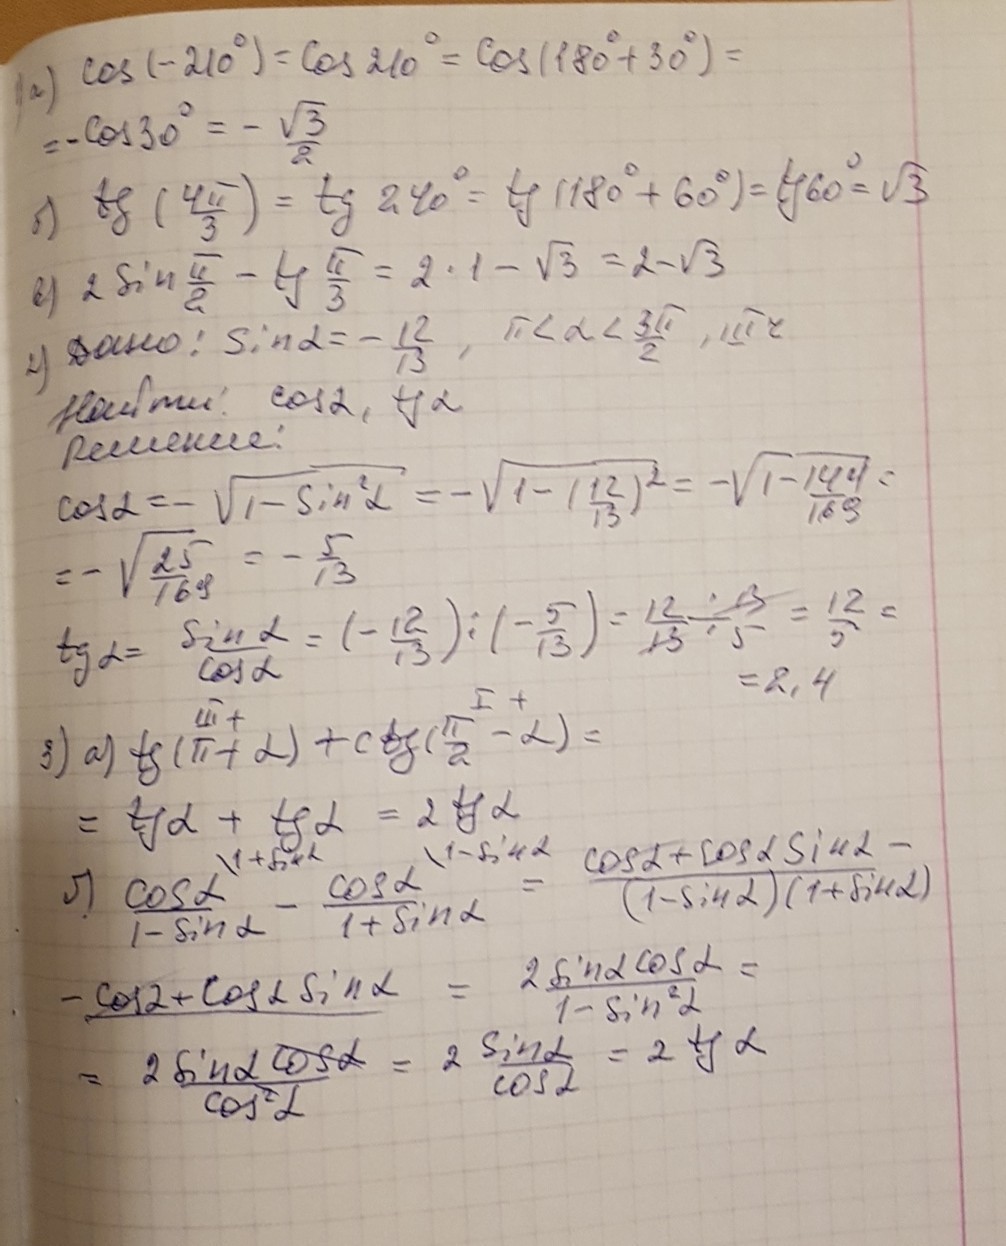 а) cos(-210°) = cos 210° = cos(180°+30°) =
= -cos30° = - √3/2
б) tg (4π/3) = tg 240° = tg (180° + 60°) = tg60° = √3
в) 2 sin π/2 - tg π/3 = 2 · 1 - √3 = 2-√3
2) Дано: sinα = - 12/13 , π < α < 3π/2 , III ч
Найти: cosα, tgα
Решение:
cosα = - √(1-sin²α) = - √(1-(12/13)²) = - √(1-144/169) =
= - √(25/169) = - 5/13
tgα = sinα/cosα = (-12/13) : (-5/13) = 12/13 · 13/5 = 12/5 =
= 2,4
III + I +
3) а) tg(π+α) + ctg(π/2 - α) =
= tgα + tgα = 2 tgα
\1+sinα \1-sinα
б) cosα/(1-sinα) - cosα/(1+sinα) = (cosα+cosα sinα -)/((1-sinα)(1+sinα))
-cosα+cosα sinα = 2sinα cosα/(1-sin²α) =
= 2sinα cosα/cos²α = 2 sinα/cosα = 2 tgα